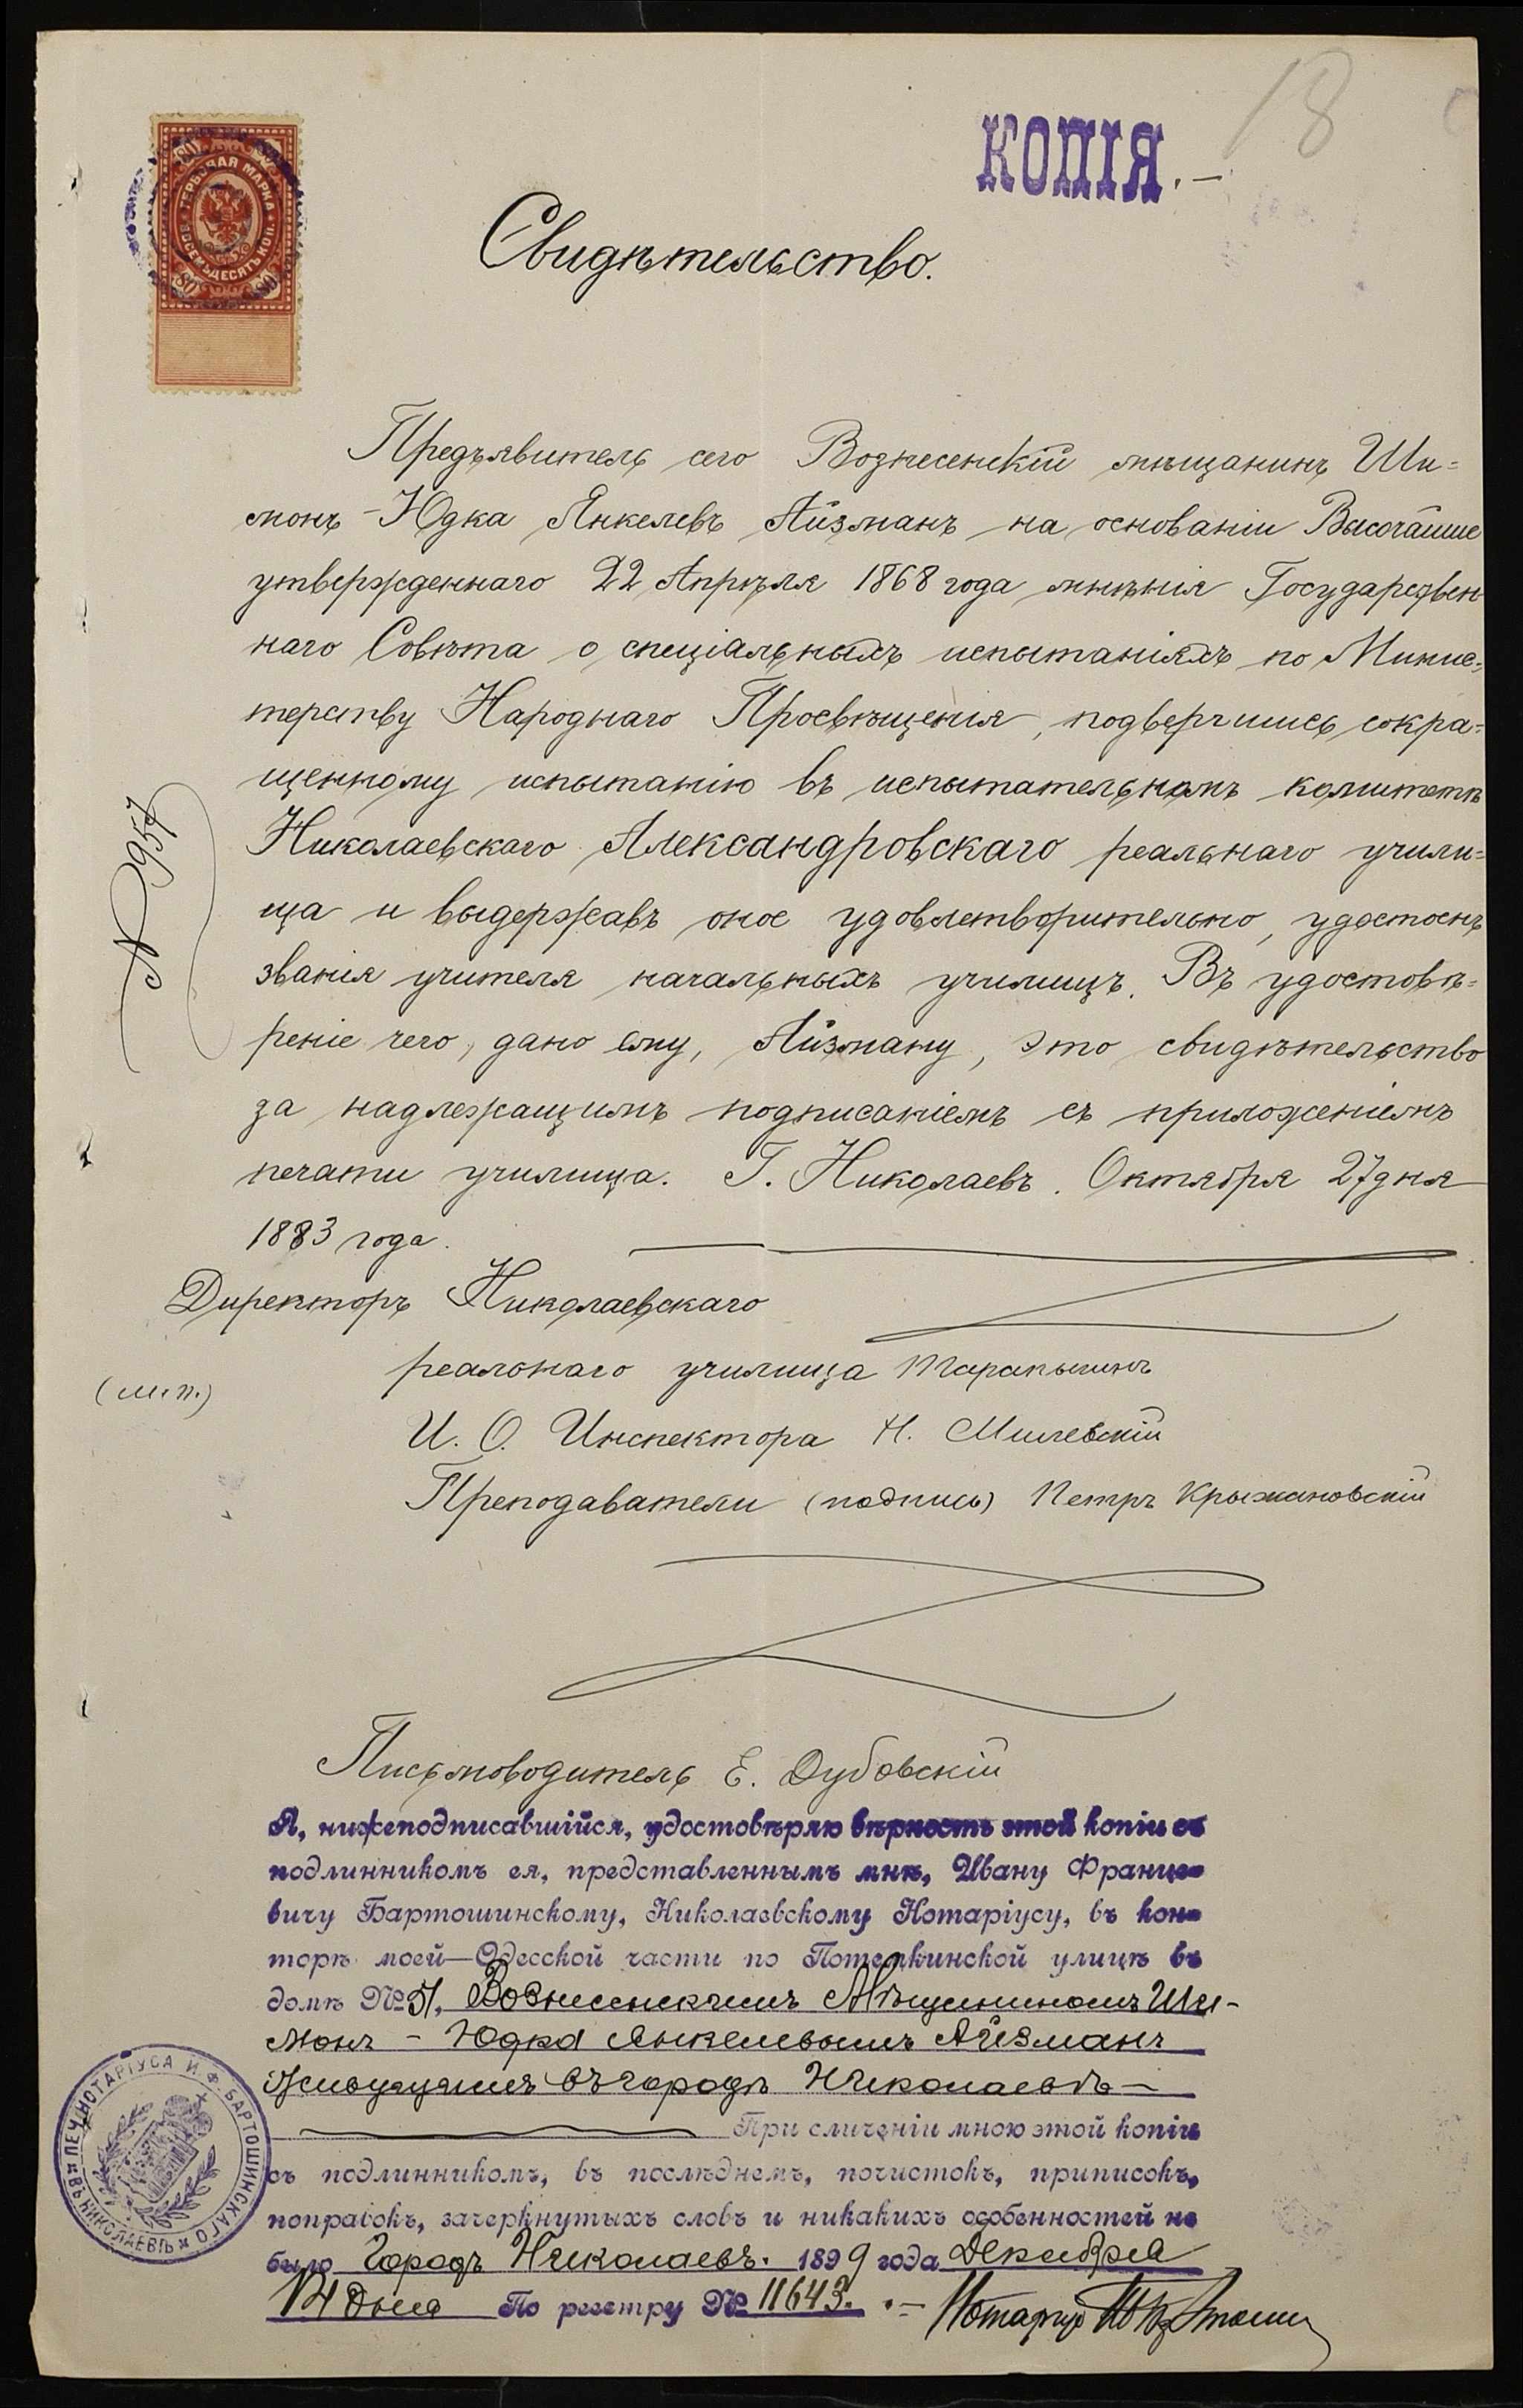 18
КОПІЯ.—
ГЕРБОВАЯ МАРКА
ВОСЕМЬДЕСЯТЪ КОП.
80 80
Свидѣтельство.
Предъявитель сего Вознесенскій мѣщанинъ Ши=
монъ-Юдка Янкелевъ Айзманъ на основаніи Высочайше
утвержденнаго 22 Апрѣля 1868 года мнѣнія Государствен
наго Совѣта о спеціальныхъ испытаніяхъ по Минис=
терству Народнаго Просвѣщенія, подвергшись сокра=
щенному испытанію въ испытательномъ комитетѣ
Николаевскаго Александровскаго реальнаго учили=
ща и выдержавъ оное удовлетворительно, удостоенъ
званія учителя начальныхъ училищъ. Въ удостовѣ=
реніе чего, дано ему, Айзману, это свидѣтельство
за надлежащимъ подписаніемъ съ приложеніемъ
печати училища. Г. Николаевъ. Октября 27 дня
1883 года.
№ 957
Директоръ Николаевскаго
реальнаго училища
(м.п.)
И. О. Инспектора Н. Милевскій
Преподаватели (подпись) Петръ Крыжановскій
Письмоводитель Е. Дубовскій
Я, нижеподписавшійся, удостовѣряю вѣрность этой копіи съ
подлинникомъ ея, представленнымъ мнѣ, Ивану Францо
вичу Бартошинскому, Николаевскому Нотаріусу, въ кон
торѣ моей—Одесской части по Потемкинской улицѣ въ
домѣ № 51, Вознесенскимъ Мѣщаниномъ Ши-
монъ-Юдка Янкелевымъ Айзманъ
живущимъ въ городѣ Николаевѣ—
При сличеніи мною этой копіи
съ подлинникомъ, въ послѣднемъ, почистокъ, приписокъ,
поправокъ, зачеркнутыхъ словъ и никакихъ особенностей не
было Городъ Николаевъ. 1899 года Декабря
дня По реестру № 11643.—
Нотаріусъ
ПЕЧ. НОТАРІУСА И. Ф. БАРТОШИНСКАГО ВЪ НИКОЛАЕВѢ